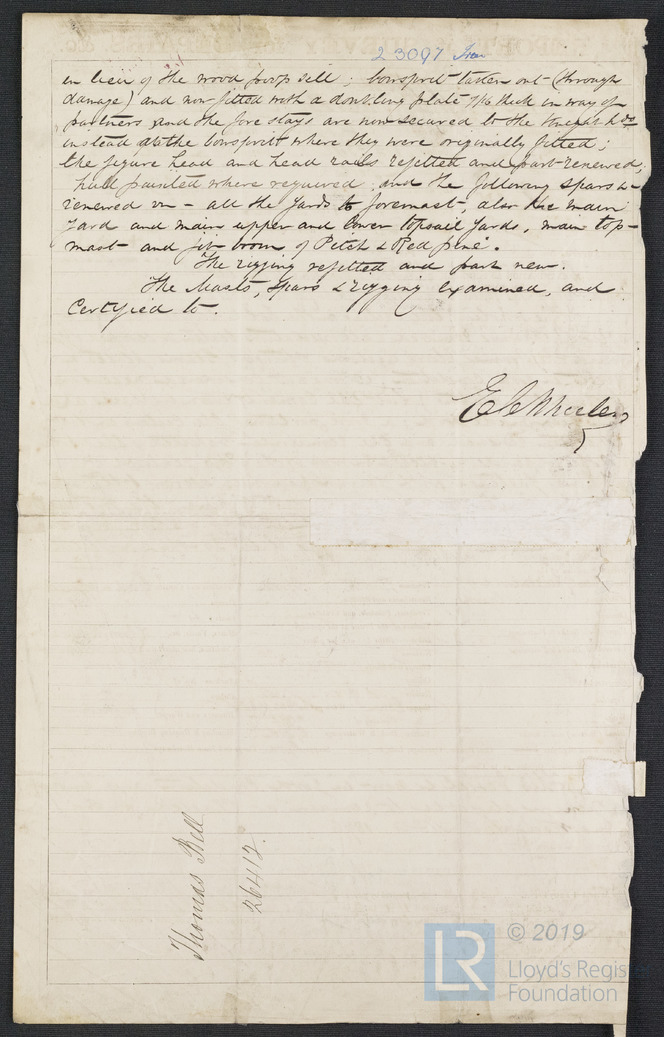 23097 Iron
in lieu of the wood poop sill; bowsprit taken out (through
damage) and now fitted with a doubling plate 7/16 thick in way of
partners and the fore stays are now secured to the knight hds
instead at the bowsprit where they were originally fitted;
the figure head and head rails refitted and part renewed;
hull painted where required, and the following spars
renewed viz - all the yards to foremast, also the main
yard and main upper and lower topsail yards, main top-
mast and jib boom of Pitch & Red pine.
The rigging refitted and part new.
The Masts, Spars & rigging examined, and
Certified to.
Thomas Bell
26412
© 2019
LR
Lloyd's Registe
Foundation